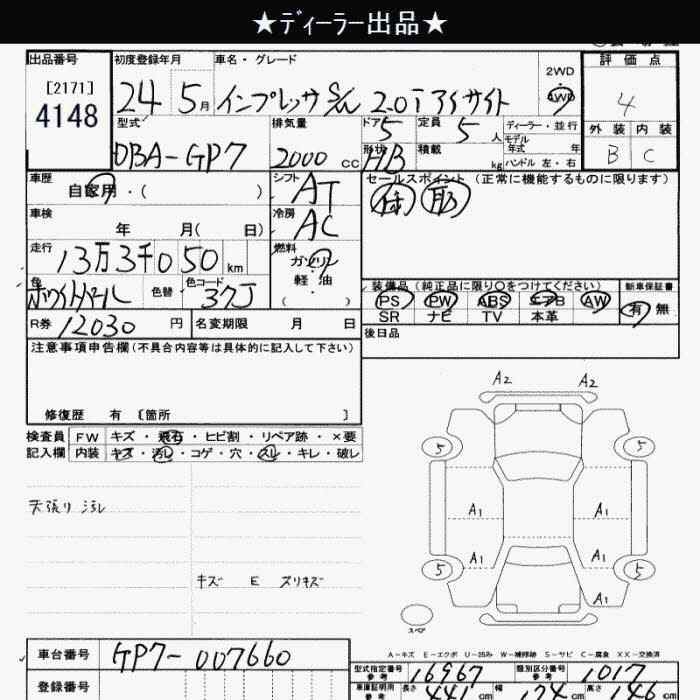 ★ディーラー出品★
出品番号 初度登録年月 車名・グレード 評価点
[2171]
4148
24 5月 インプレッサ S/W 2.0i アイサイト
2WD
4WD
4
外装 内装
B C
型式 排気量 ドア 定員 ディーラー・並行
DBA-GP7 2000 cc 5 5 人
モデル年式 年
形状 積載
HB kg ハンドル 左・右
車歴 自家用・( )
シフト AT
セールスポイント (正常に機能するものに限ります)
車検 年 月( 日)
冷房 AC
走行 13万3千050 km
燃料 ガソリン
軽油
( )
色 ホワイトパール 色替 色コード 37J
装備品(純正品に限り○をつけてください) 新車保証書
PS PW ABS エアB AW 有 無
SR ナビ TV 本革
R券 12030 円 名変期限 月 日
後日品
注意事項申告欄(不具合内容等は具体的に記入して下さい)
修復歴 有 〔箇所 〕
検査員 FW キズ・飛石・ヒビ割・リペア跡・×要
記入欄 内装 キズ・汚レ・コゲ・穴・スレ・キレ・破レ
天張り 汚レ
キズ E ズリキズ
A2 A2
5 5
A1 A1
A1 A1
5 5
A1
スペア
A-キズ E-エクボ U-凹み W-補修跡 S-サビ C-腐食 XX-交換済
車台番号 GP7-007660
登録番号
型式指定番号 参考 16967 類別区分番号 参考 1017
車庫証明用 参考 長さ 441 cm 幅 174 cm 高さ 146 cm